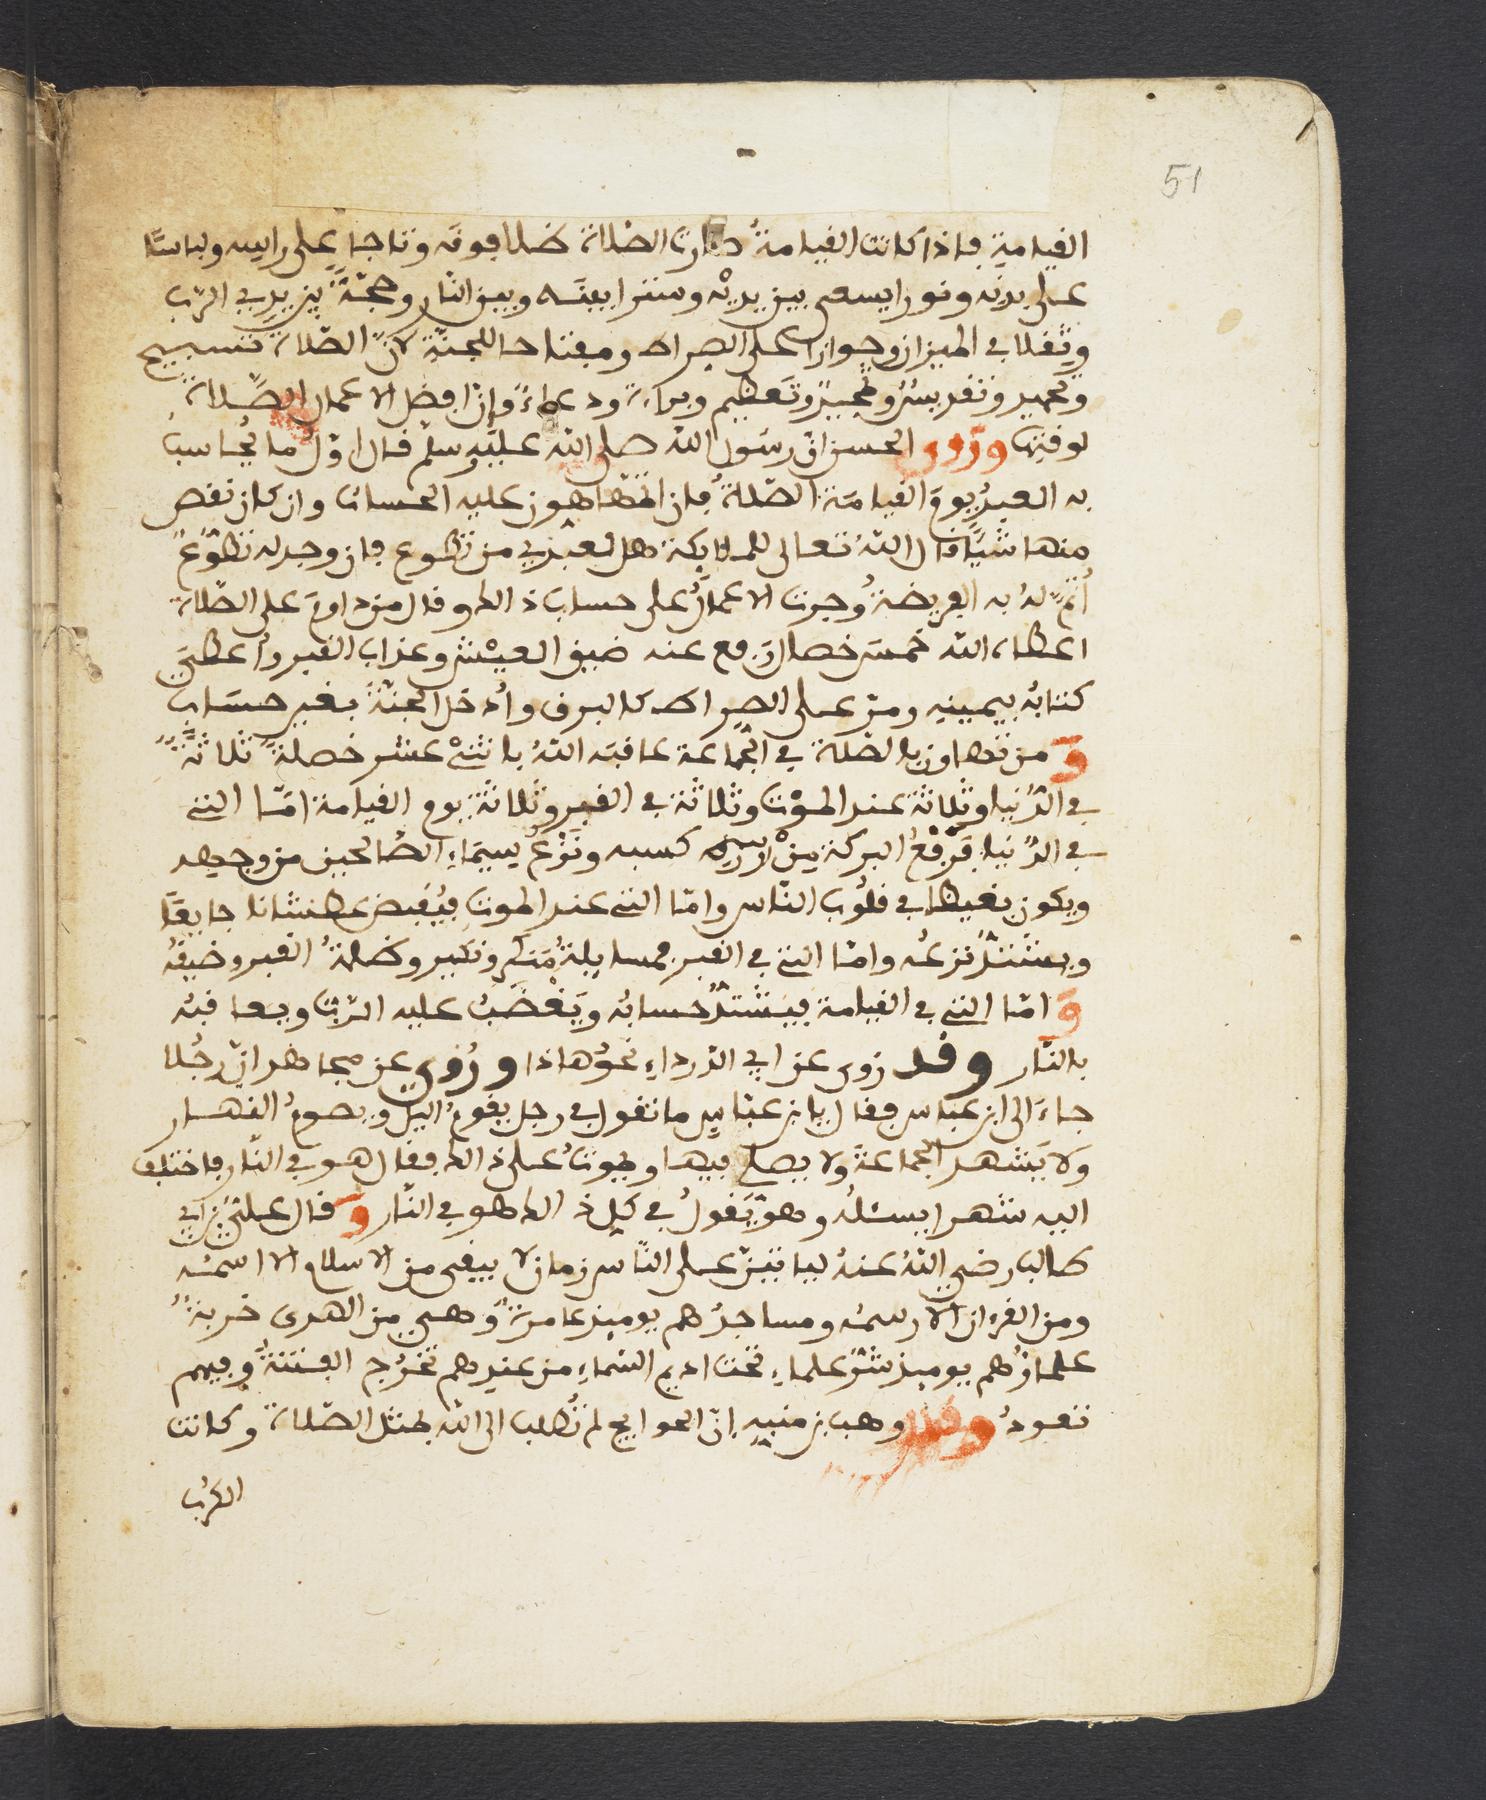 51
القيامة فاذا كانت القيامةُ صارت الصّلاة ظلا فوقه وتاجا على راسه ولباسًا
على بدنه ونورا يسعى بين يديْه وسترا بينه وبين النّار وحجّةً بين يدي الرّب
وثقلا في الميزان وجوازًا على الصراط ومفتاحا للجنّة لانّ الصّلاة تسبيح
وتحميد وتقديسٌ وتمجيدٌ وتعظيم وقراءة ودعاءٌ وانّ افضل الاعمال الصّلاة
لوقتها ورَوى الحسن انّ رسول الله صلى الله عليه وسلّم قال اوّلُ ما يُحاسبُ
به العبدُ يومَ القيامَة الصّلاةُ فان اتمّها هون عليه الحساب وان كان نقص
منها شيًا قال اللهُ تعالى للملايكة هل لعبدي من تطوع فان وجد له تطوّعٌ
اُتمّ لهُ به الفريضةُ وجرت الاعمالُ على حساب ذالك وقال من داومَ على الصّلاة
اعطاه الله خمسَ خصال رَفع عنه ضيق العيْش وعذاب القبر وأعطيَ
كتابهُ بيمينه ومرّ على الصراط كالبرق وأُدخل الجنّةَ بغير حسَاب
وَمن تهاون بالصّلاة في الجماعة عاقبه اللهُ باثنتيْ عشر خصلةً ثلاثةٌ
في الدُّنيا وثلاثة عند الموْت وثلاثة في القبر وثلاثة يوم القيامة امّا التي
في الدُّنيا فترْفعُ البركة مِنْ كسبه ونَزْعُ سِيمَاءِ الصّالحين من وجهه
ويكون بغيظا في قلُوب النّاس وامّا التي عند الموت فيُقبض عطشانا جايعًا
ويشتدُّ نزعُه وامّا التي في القبر فمسايلةُ مُنكر ونكير وظلمةُ القبر وضيقُه
وَامّا التي في القيامة فيشتدُّ حسابُه ويَغْضَبُ عليه الرّبّ ويعاقبُه
بالنّار وقد رُوى عن ابي الدّرداءِ نحوُ هاذا ورُوِيَ عن مجاهد انّ رجُلا
جاءَ الى ابن عبّاس فقال يا بن عبّاسٍ ما تقول في رجل يقومُ اليل ويصومُ النهار
ولا يَشهد الجماعة ولا يصلي فيها ويموتُ على ذالك فقال هو في النّار فاختلف
اليه شهرا يسئلُه وهو يَقولُ في كل ذالك هو في النّار وَقال عليّ بن ابي
طالب رضي اللهُ عنهُ لياتيَنّ على النّاس زمان لا يبقى من الاسلام الا اسمُه
ومن القرءان الا رسمُه ومساجدُهم يوميذ عامرةٌ وهي من الهدى خربةٌ
علماؤُهم يوميذ شرّ علماءِ تحت اديم السّماءِ من عندهم تخرُج الفتنةُ وفيهم
تعودُ وقال وهب بن منبه انّ الحوايج لم تُطلب الى الله بمثل الصّلاة وكانت
الكرُب